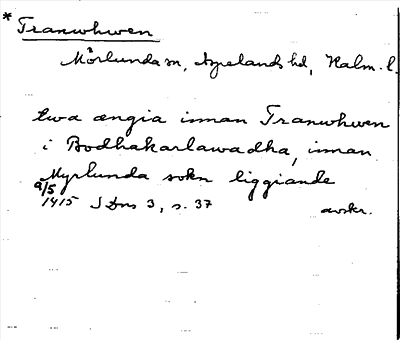 * Tranwhwen
Mörlunda sn, Aspelands hd, Kalm. l.
twa ængia innan Tranwhwen
i Bodhakarlawadha, innan
Myrlunda sokn liggiande
9/5
1415 SDns 3, s. 37
avskr.